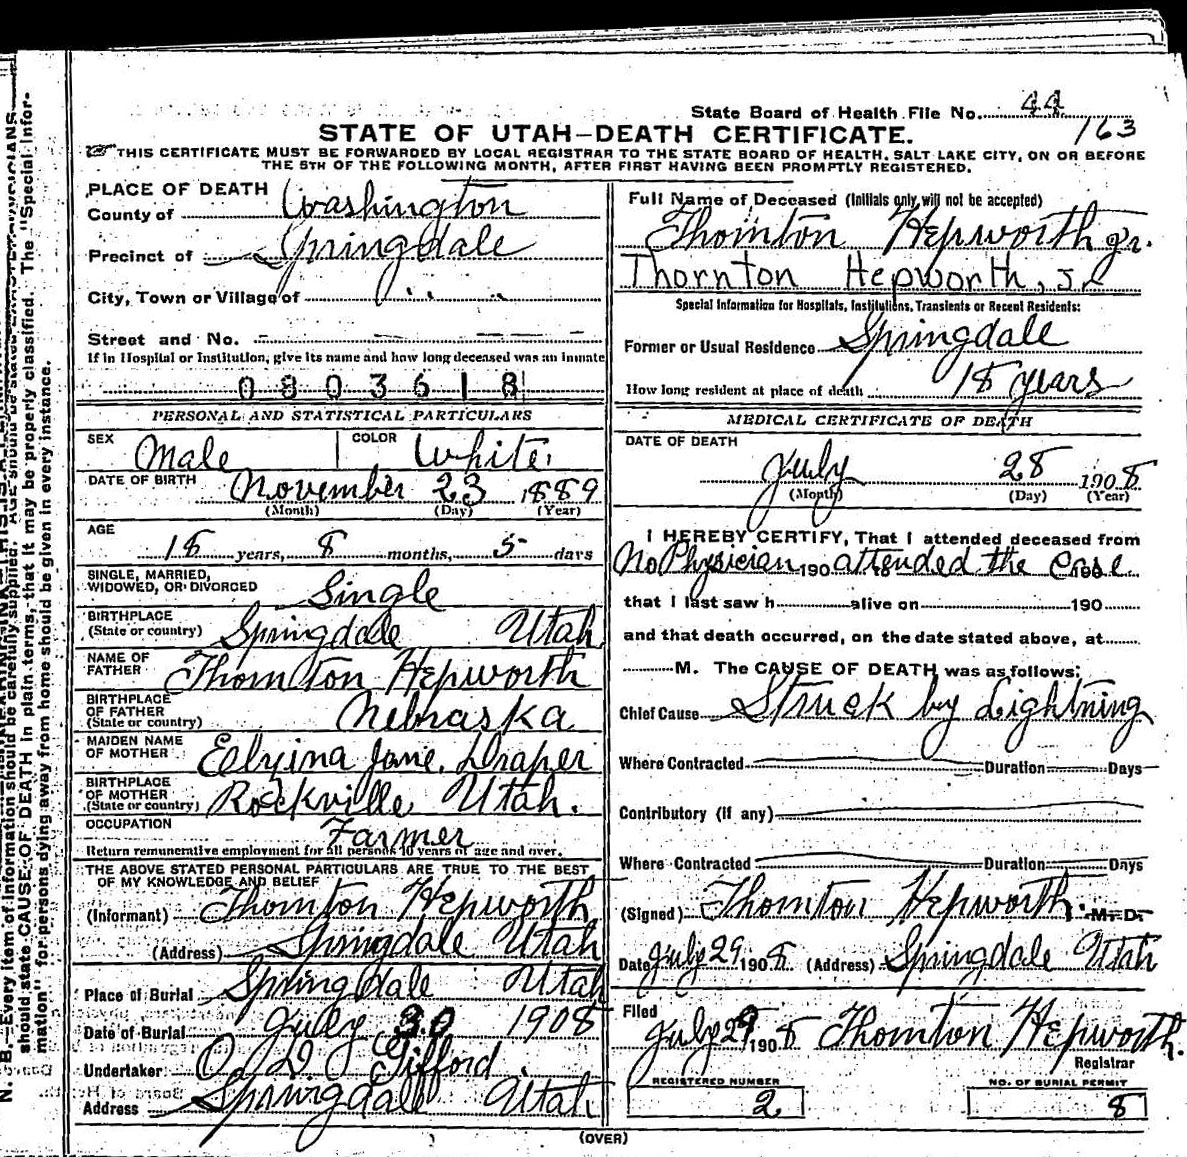 State Board of Health File No. 44
163
STATE OF UTAH—DEATH CERTIFICATE.
THIS CERTIFICATE MUST BE FORWARDED BY LOCAL REGISTRAR TO THE STATE BOARD OF HEALTH, SALT LAKE CITY, ON OR BEFORE
THE 5TH OF THE FOLLOWING MONTH, AFTER FIRST HAVING BEEN PROMPTLY REGISTERED.
PLACE OF DEATH
County of Washington
Precinct of Springdale
City, Town or Village of " "
Street and No. — — — —
If in Hospital or Institution, give its name and how long deceased was an inmate
0803618
PERSONAL AND STATISTICAL PARTICULARS
SEX Male COLOR White
DATE OF BIRTH November 23 1889
(Month) (Day) (Year)
AGE
18 years, 8 months, 5 days
SINGLE, MARRIED,
WIDOWED, OR DIVORCED Single
BIRTHPLACE
(State or country) Springdale Utah
NAME OF
FATHER Thornton Hepworth
BIRTHPLACE
OF FATHER
(State or country) Nebraska
MAIDEN NAME
OF MOTHER Elzina Jane Draper
BIRTHPLACE
OF MOTHER
(State or country) Rockville Utah.
OCCUPATION Farmer
Return remunerative employment for all persons 10 years of age and over.
THE ABOVE STATED PERSONAL PARTICULARS ARE TRUE TO THE BEST
OF MY KNOWLEDGE AND BELIEF
(Informant) Thornton Hepworth
(Address) Springdale Utah
Place of Burial Springdale Utah
Date of Burial July 30 1908
Undertaker O D Gifford
Address Springdale Utah
Full Name of Deceased (Initials only will not be accepted)
Thornton Hepworth Jr.
Thornton Hepworth, Jr.
Special Information for Hospitals, Institutions, Transients or Recent Residents:
Former or Usual Residence Springdale
How long resident at place of death 18 years
MEDICAL CERTIFICATE OF DEATH
DATE OF DEATH
July 28 1908
(Month) (Day) (Year)
I HEREBY CERTIFY, That I attended deceased from
No Physician 190 attended the case 190
that I last saw h alive on 190
and that death occurred, on the date stated above, at
M. The CAUSE OF DEATH was as follows:
Chief Cause Struck by Lightning
Where Contracted Duration Days
Contributory (if any)
Where Contracted Duration Days
(Signed) Thornton Hepworth. M. D.
Date July 29 1908 (Address) Springdale Utah
Filed
July 29 1908 Thornton Hepworth.
Registrar
REGISTERED NUMBER
2
NO. OF BURIAL PERMIT
8
(OVER)
N. B.—Every item of information should be carefully supplied. AGE should be stated
should state CAUSE OF DEATH in plain terms, that it may be properly classified. The "Special Infor-
mation" for persons dying away from home should be given in every instance.